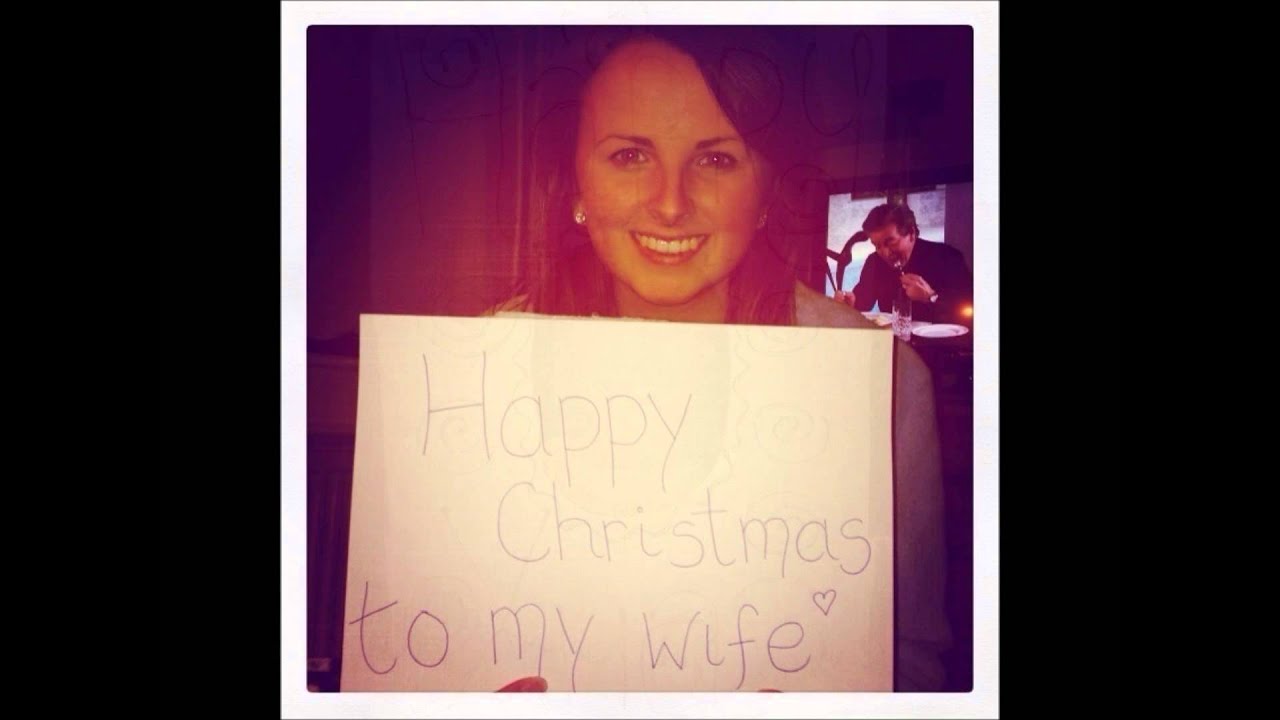 Happy
Christmas
to my wife♡